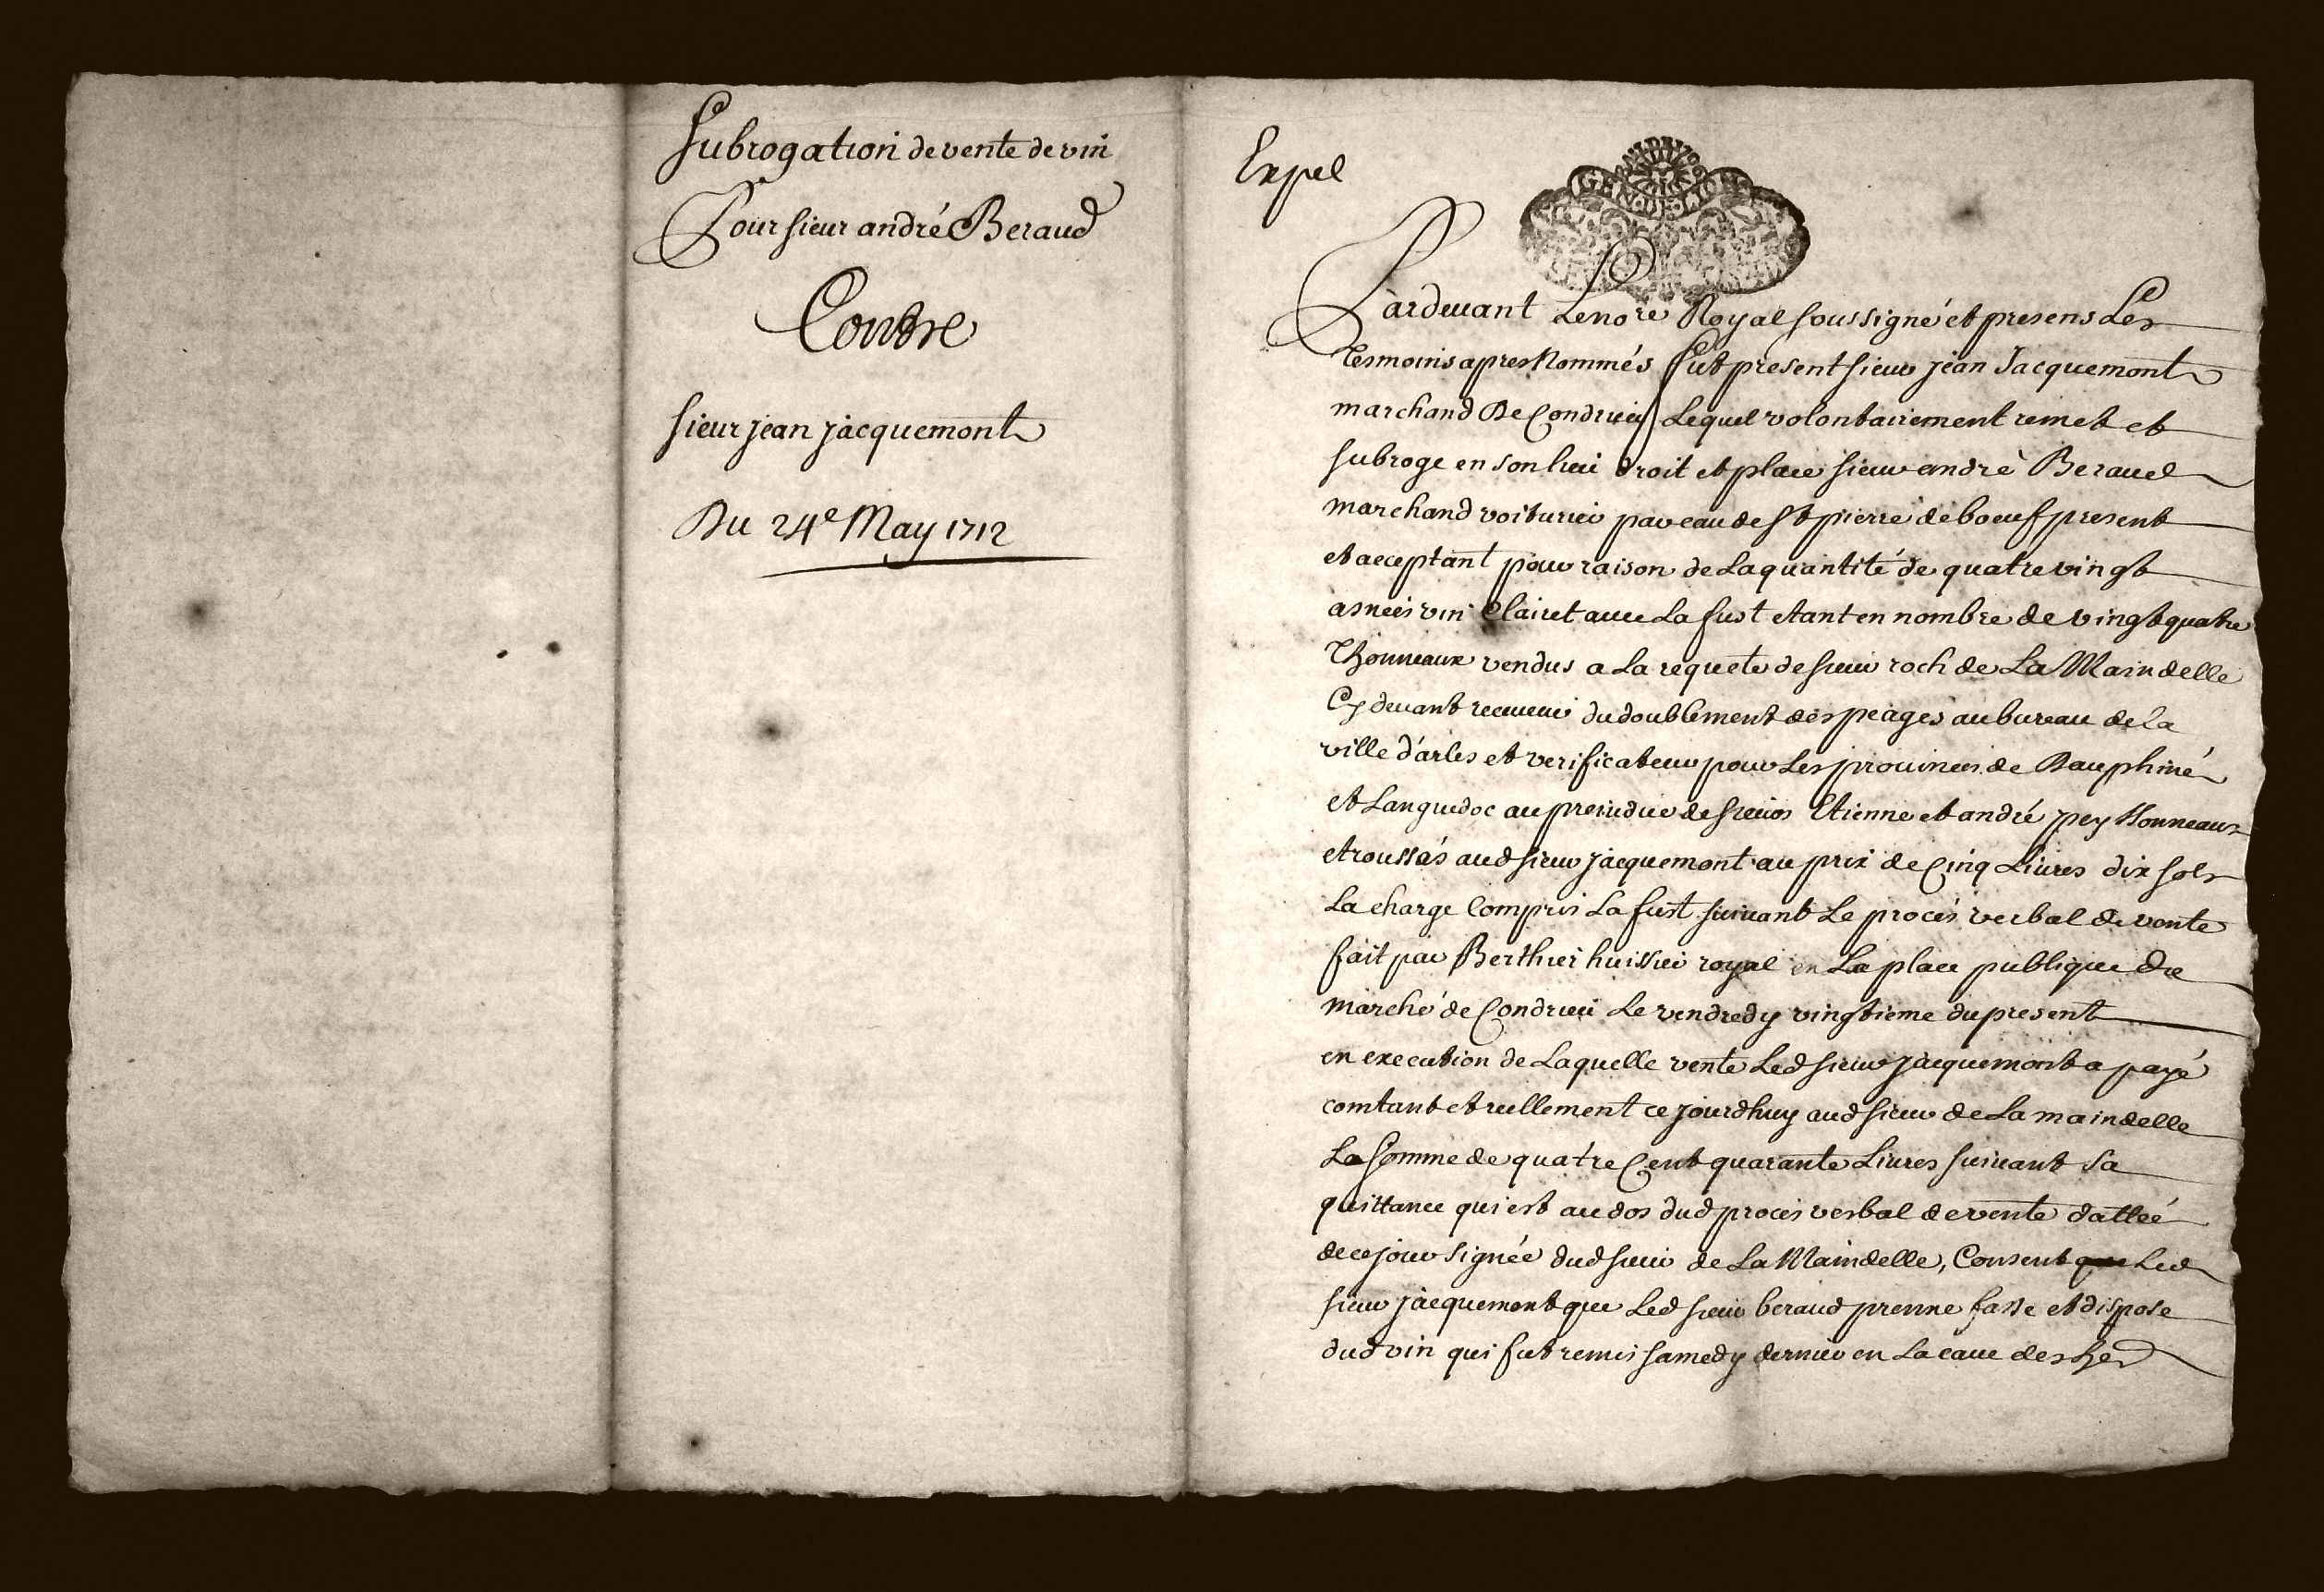 Subrogation de vente de vin
Pour sieur andré Beraud
Contre
sieur jean jacquemont
Du 24e May 1712
Expel
Pardevant Le nore Royal soussigné et presens Les
tesmoins apres Nommés fut present sieur jean Jacquemont
marchand De Condrieu Lequel volontairement remet et
subroge en son lieu droit et place sieur andrè Beraud
marchand voiturier par eau de St pierre de boeuf present
et acceptant pour raison de La quantité de quatre vingt
asnées vin Clairet avec La fust etant en nombre de vingt quatre
Thonneaux vendus a La requete de sieur roch de La Maindelle
Cy devant receveur du doublement des peages au bureau de La
ville d'arles et verificateur pour Les provinces de Dauphiné
et Languedoc au preiudice de sieurs Etienne et andré
etroussés aud sieur jacquemont au prix de Cinq Livres dix sols
La charge Compris La fust suivant Le procés verbal de vente
fait par Berthier huissier royal en La place publique du
marché de Condrieu Le vendredy vingtieme du present
en execution de Laquelle vente Led sieur jacquemont a payé
comtant et reellement ce jourdhuy aud sieur de La maindelle
La Somme de quatre Cent quarante Livres suivant sa
quittance qui est au dos dud procés verbal de vente dattée
de ce jour signée dud sieur de La Maindelle, Consent que Led
sieur jacquemont que Led sieur beraud prenne fasse et dispose
dud vin qui fut remis samedy dernier en La cave des